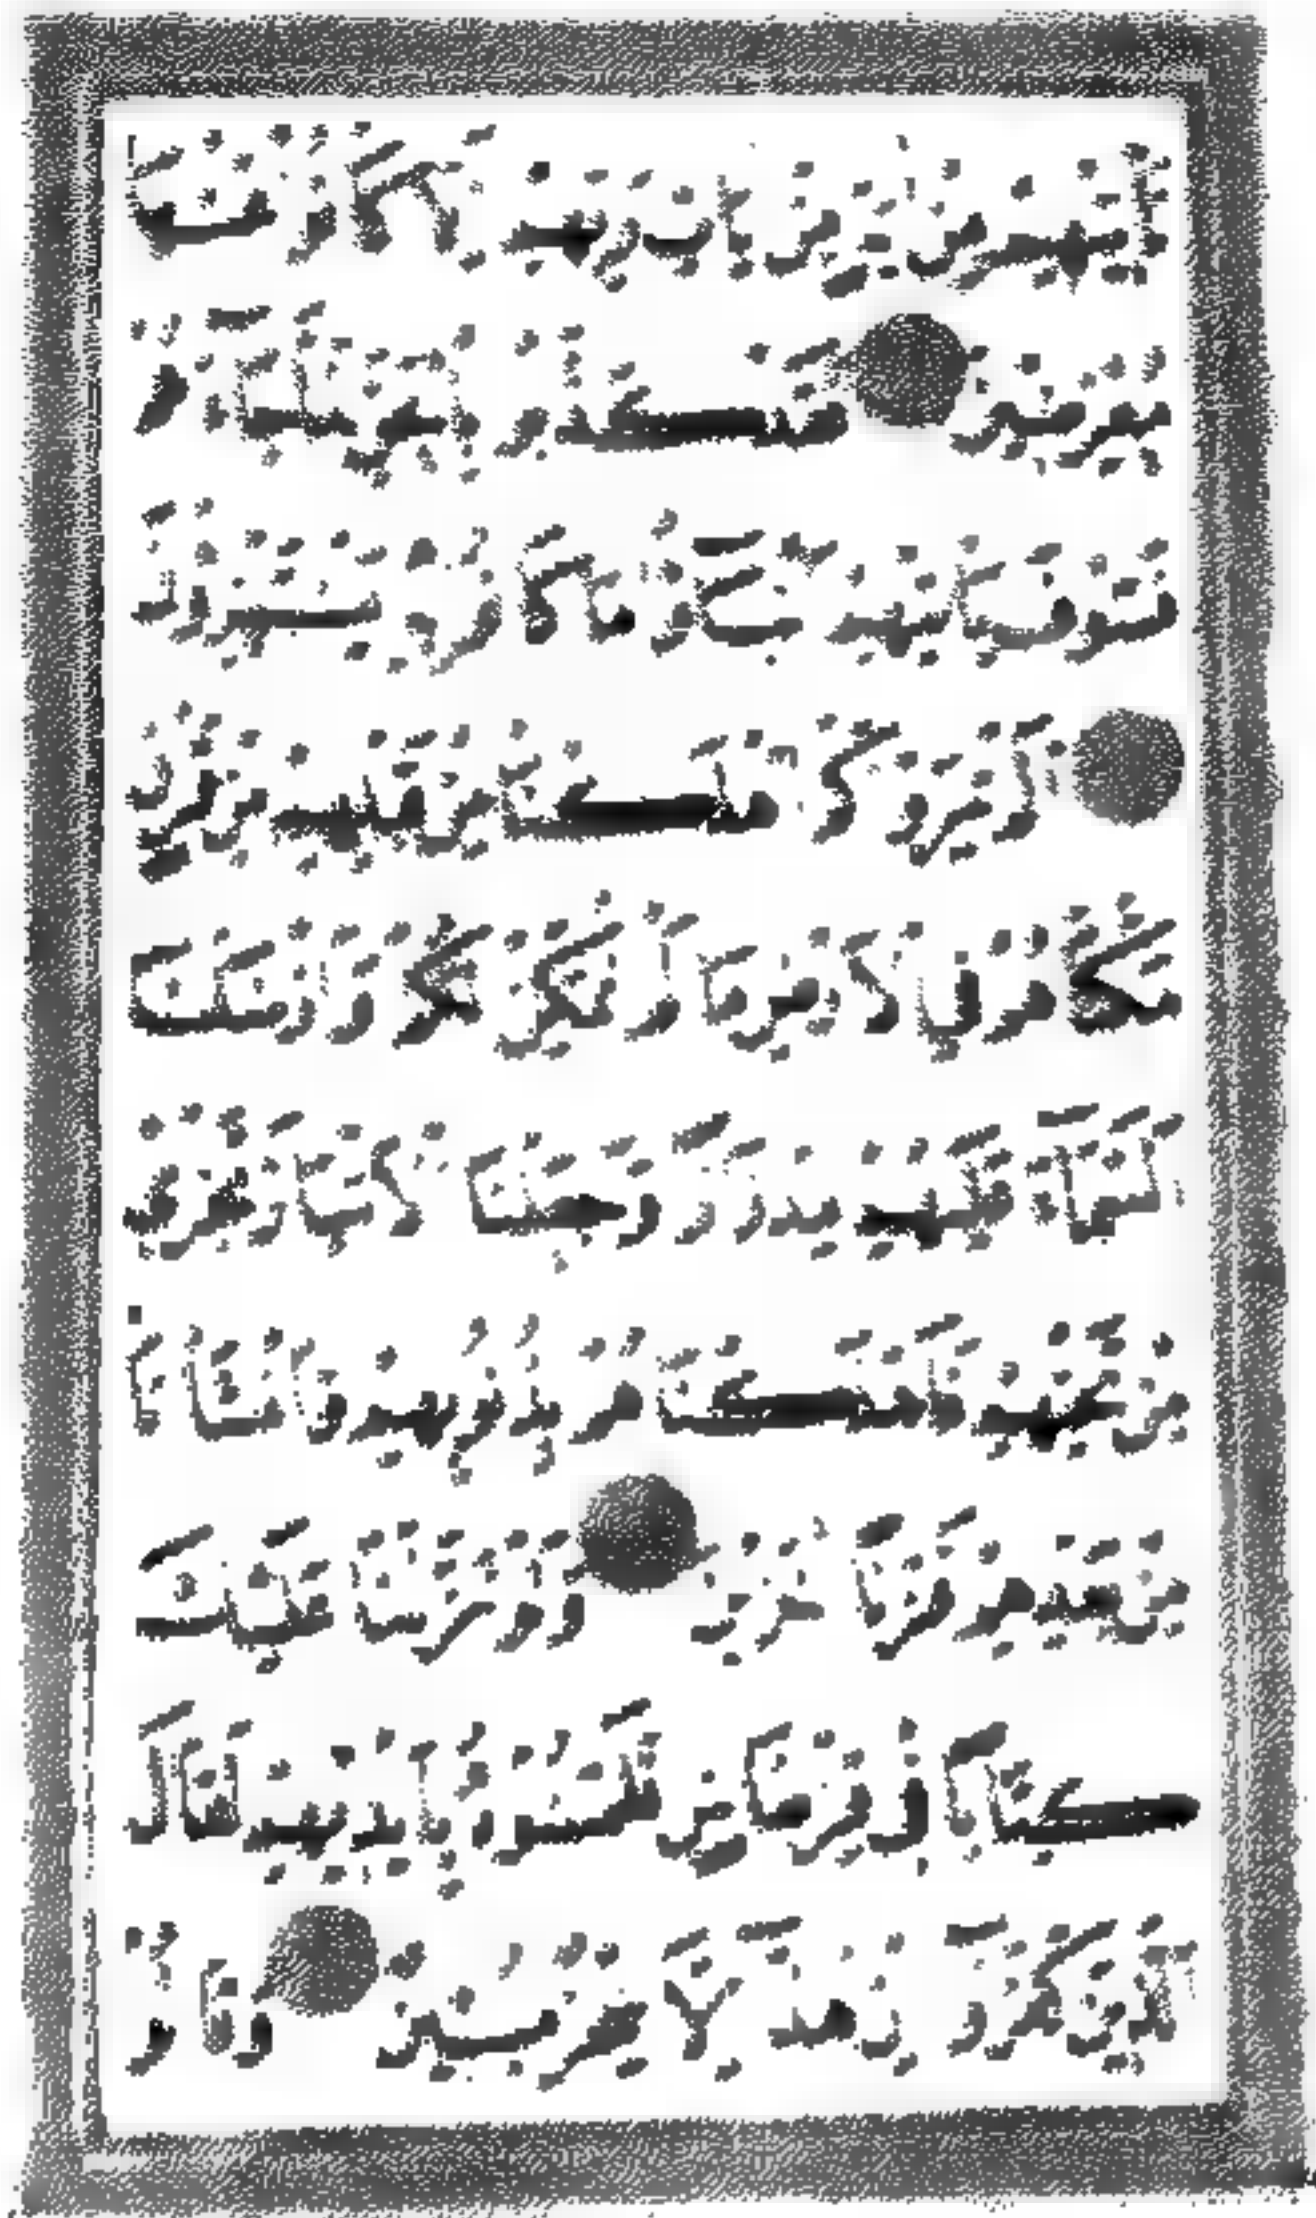 تَأْتِيهِم مِّنْ ءَايَةٍ مِّنْ ءَايَٰتِ رَبِّهِمْ إِلَّا كَانُوا۟ عَنْهَا
مُعْرِضِينَ فَقَدْ كَذَّبُوا۟ بِٱلْحَقِّ لَمَّا جَآءَهُمْ
فَسَوْفَ يَأْتِيهِمْ أَنۢبَٰٓؤُا۟ مَا كَانُوا۟ بِهِۦ يَسْتَهْزِءُونَ
أَلَمْ يَرَوْا۟ كَمْ أَهْلَكْنَا مِن قَبْلِهِم مِّن قَرْنٍ
مَّكَّنَّٰهُمْ فِى ٱلْأَرْضِ مَا لَمْ نُمَكِّن لَّكُمْ وَأَرْسَلْنَا
ٱلسَّمَآءَ عَلَيْهِم مِّدْرَارًا وَجَعَلْنَا ٱلْأَنْهَٰرَ تَجْرِى
مِن تَحْتِهِمْ فَأَهْلَكْنَٰهُم بِذُنُوبِهِمْ وَأَنشَأْنَا
مِنۢ بَعْدِهِمْ قَرْنًا ءَاخَرِينَ وَلَوْ نَزَّلْنَا عَلَيْكَ
كِتَٰبًا فِى قِرْطَاسٍ فَلَمَسُوهُ بِأَيْدِيهِمْ لَقَالَ
ٱلَّذِينَ كَفَرُوٓا۟ إِنْ هَٰذَآ إِلَّا سِحْرٌ مُّبِينٌ وَقَالُوا۟